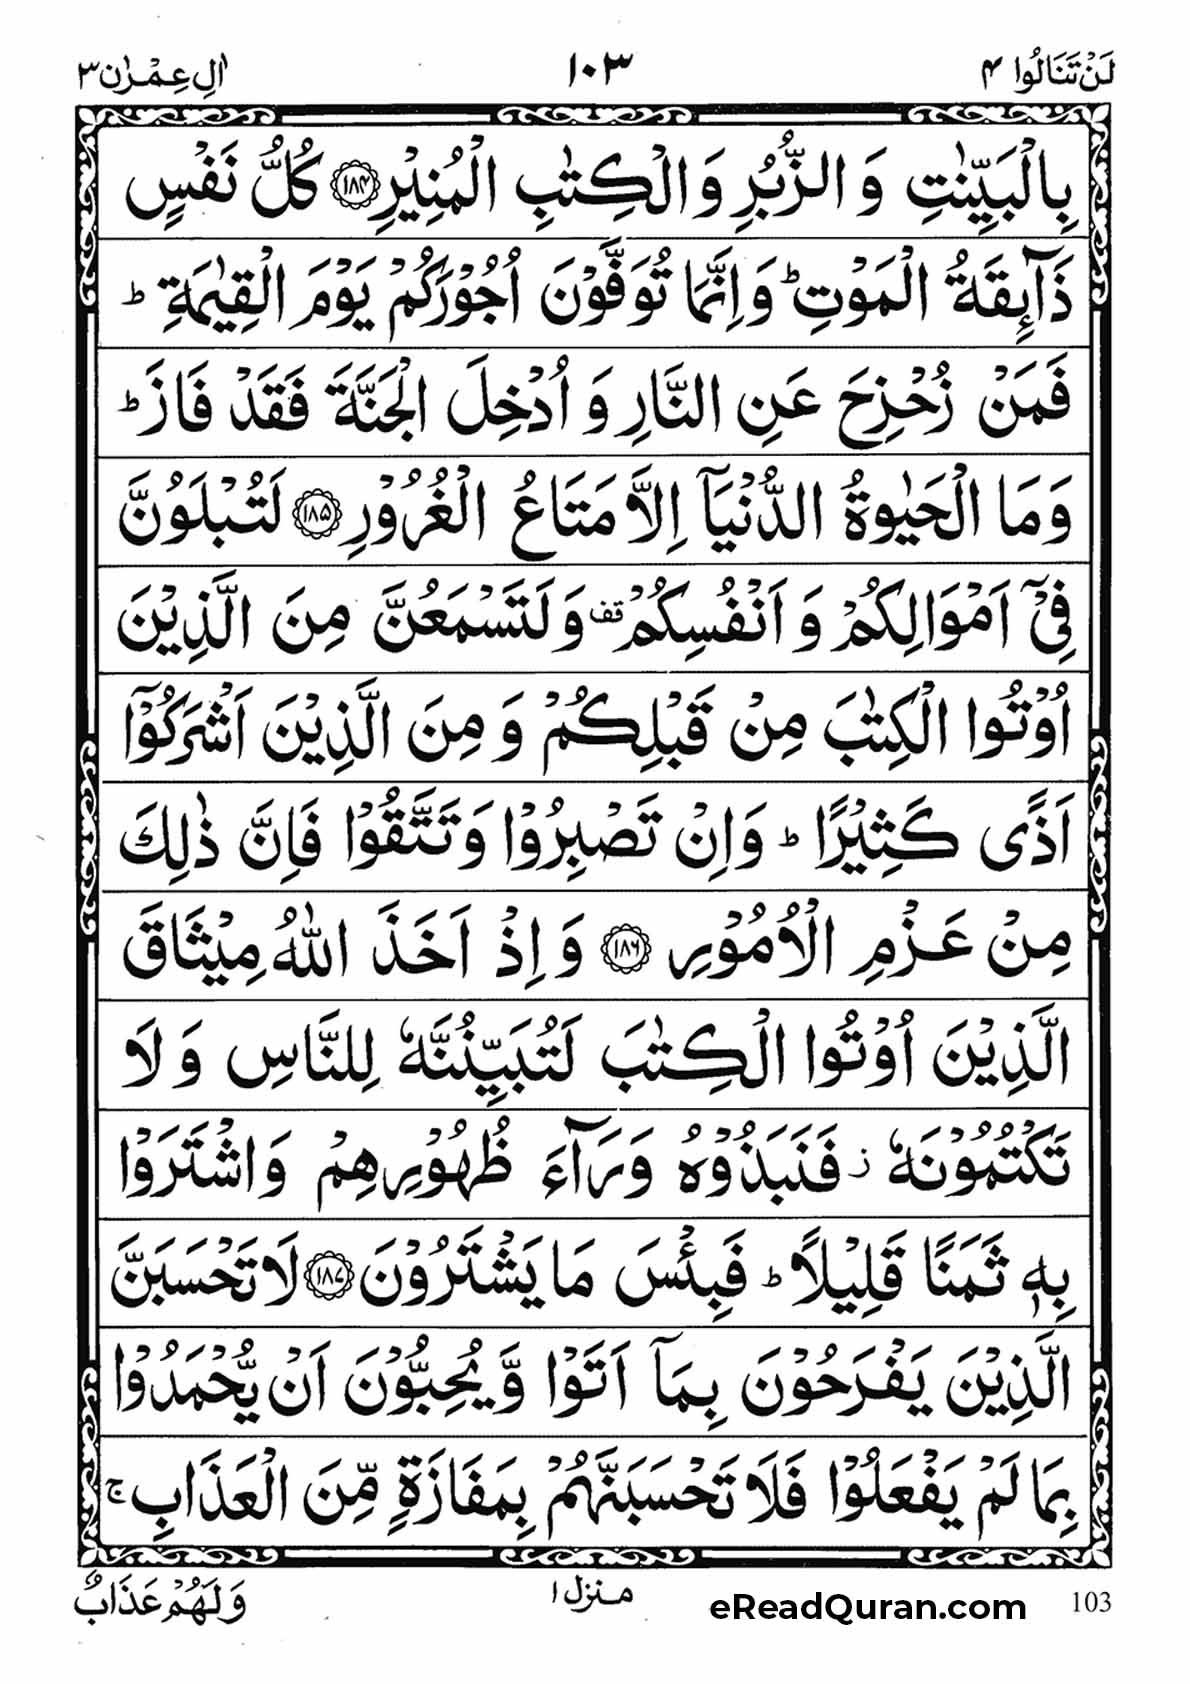 لَنْ تَنَالُوا ۴
۱۰۳
اٰلِ عِمْرٰن ۳
بِالْبَيِّنٰتِ وَ الزُّبُرِ وَ الْكِتٰبِ الْمُنِيْرِ ﴿۱۸۴﴾ كُلُّ نَفْسٍ
ذَآىِٕقَةُ الْمَوْتِ ؕ وَ اِنَّمَا تُوَفَّوْنَ اُجُوْرَكُمْ يَوْمَ الْقِيٰمَةِ ؕ
فَمَنْ زُحْزِحَ عَنِ النَّارِ وَ اُدْخِلَ الْجَنَّةَ فَقَدْ فَازَ ؕ
وَ مَا الْحَيٰوةُ الدُّنْيَاۤ اِلَّا مَتَاعُ الْغُرُوْرِ ﴿۱۸۵﴾ لَتُبْلَوُنَّ
فِيْۤ اَمْوَالِكُمْ وَ اَنْفُسِكُمْ قف وَ لَتَسْمَعُنَّ مِنَ الَّذِيْنَ
اُوْتُوا الْكِتٰبَ مِنْ قَبْلِكُمْ وَ مِنَ الَّذِيْنَ اَشْرَكُوْۤا
اَذًى كَثِيْرًا ؕ وَ اِنْ تَصْبِرُوْا وَ تَتَّقُوْا فَاِنَّ ذٰلِكَ
مِنْ عَزْمِ الْاُمُوْرِ ﴿۱۸۶﴾ وَ اِذْ اَخَذَ اللّٰهُ مِيْثَاقَ
الَّذِيْنَ اُوْتُوا الْكِتٰبَ لَتُبَيِّنُنَّهٗ لِلنَّاسِ وَ لَا
تَكْتُمُوْنَهٗ ز فَنَبَذُوْهُ وَرَآءَ ظُهُوْرِهِمْ وَ اشْتَرَوْا
بِهٖ ثَمَنًا قَلِيْلًا ؕ فَبِئْسَ مَا يَشْتَرُوْنَ ﴿۱۸۷﴾ لَا تَحْسَبَنَّ
الَّذِيْنَ يَفْرَحُوْنَ بِمَاۤ اَتَوْا وَّ يُحِبُّوْنَ اَنْ يُّحْمَدُوْا
بِمَا لَمْ يَفْعَلُوْا فَلَا تَحْسَبَنَّهُمْ بِمَفَازَةٍ مِّنَ الْعَذَابِ ج
وَ لَهُمْ عَذَابٌ
منزل ۱
eReadQuran.com
103